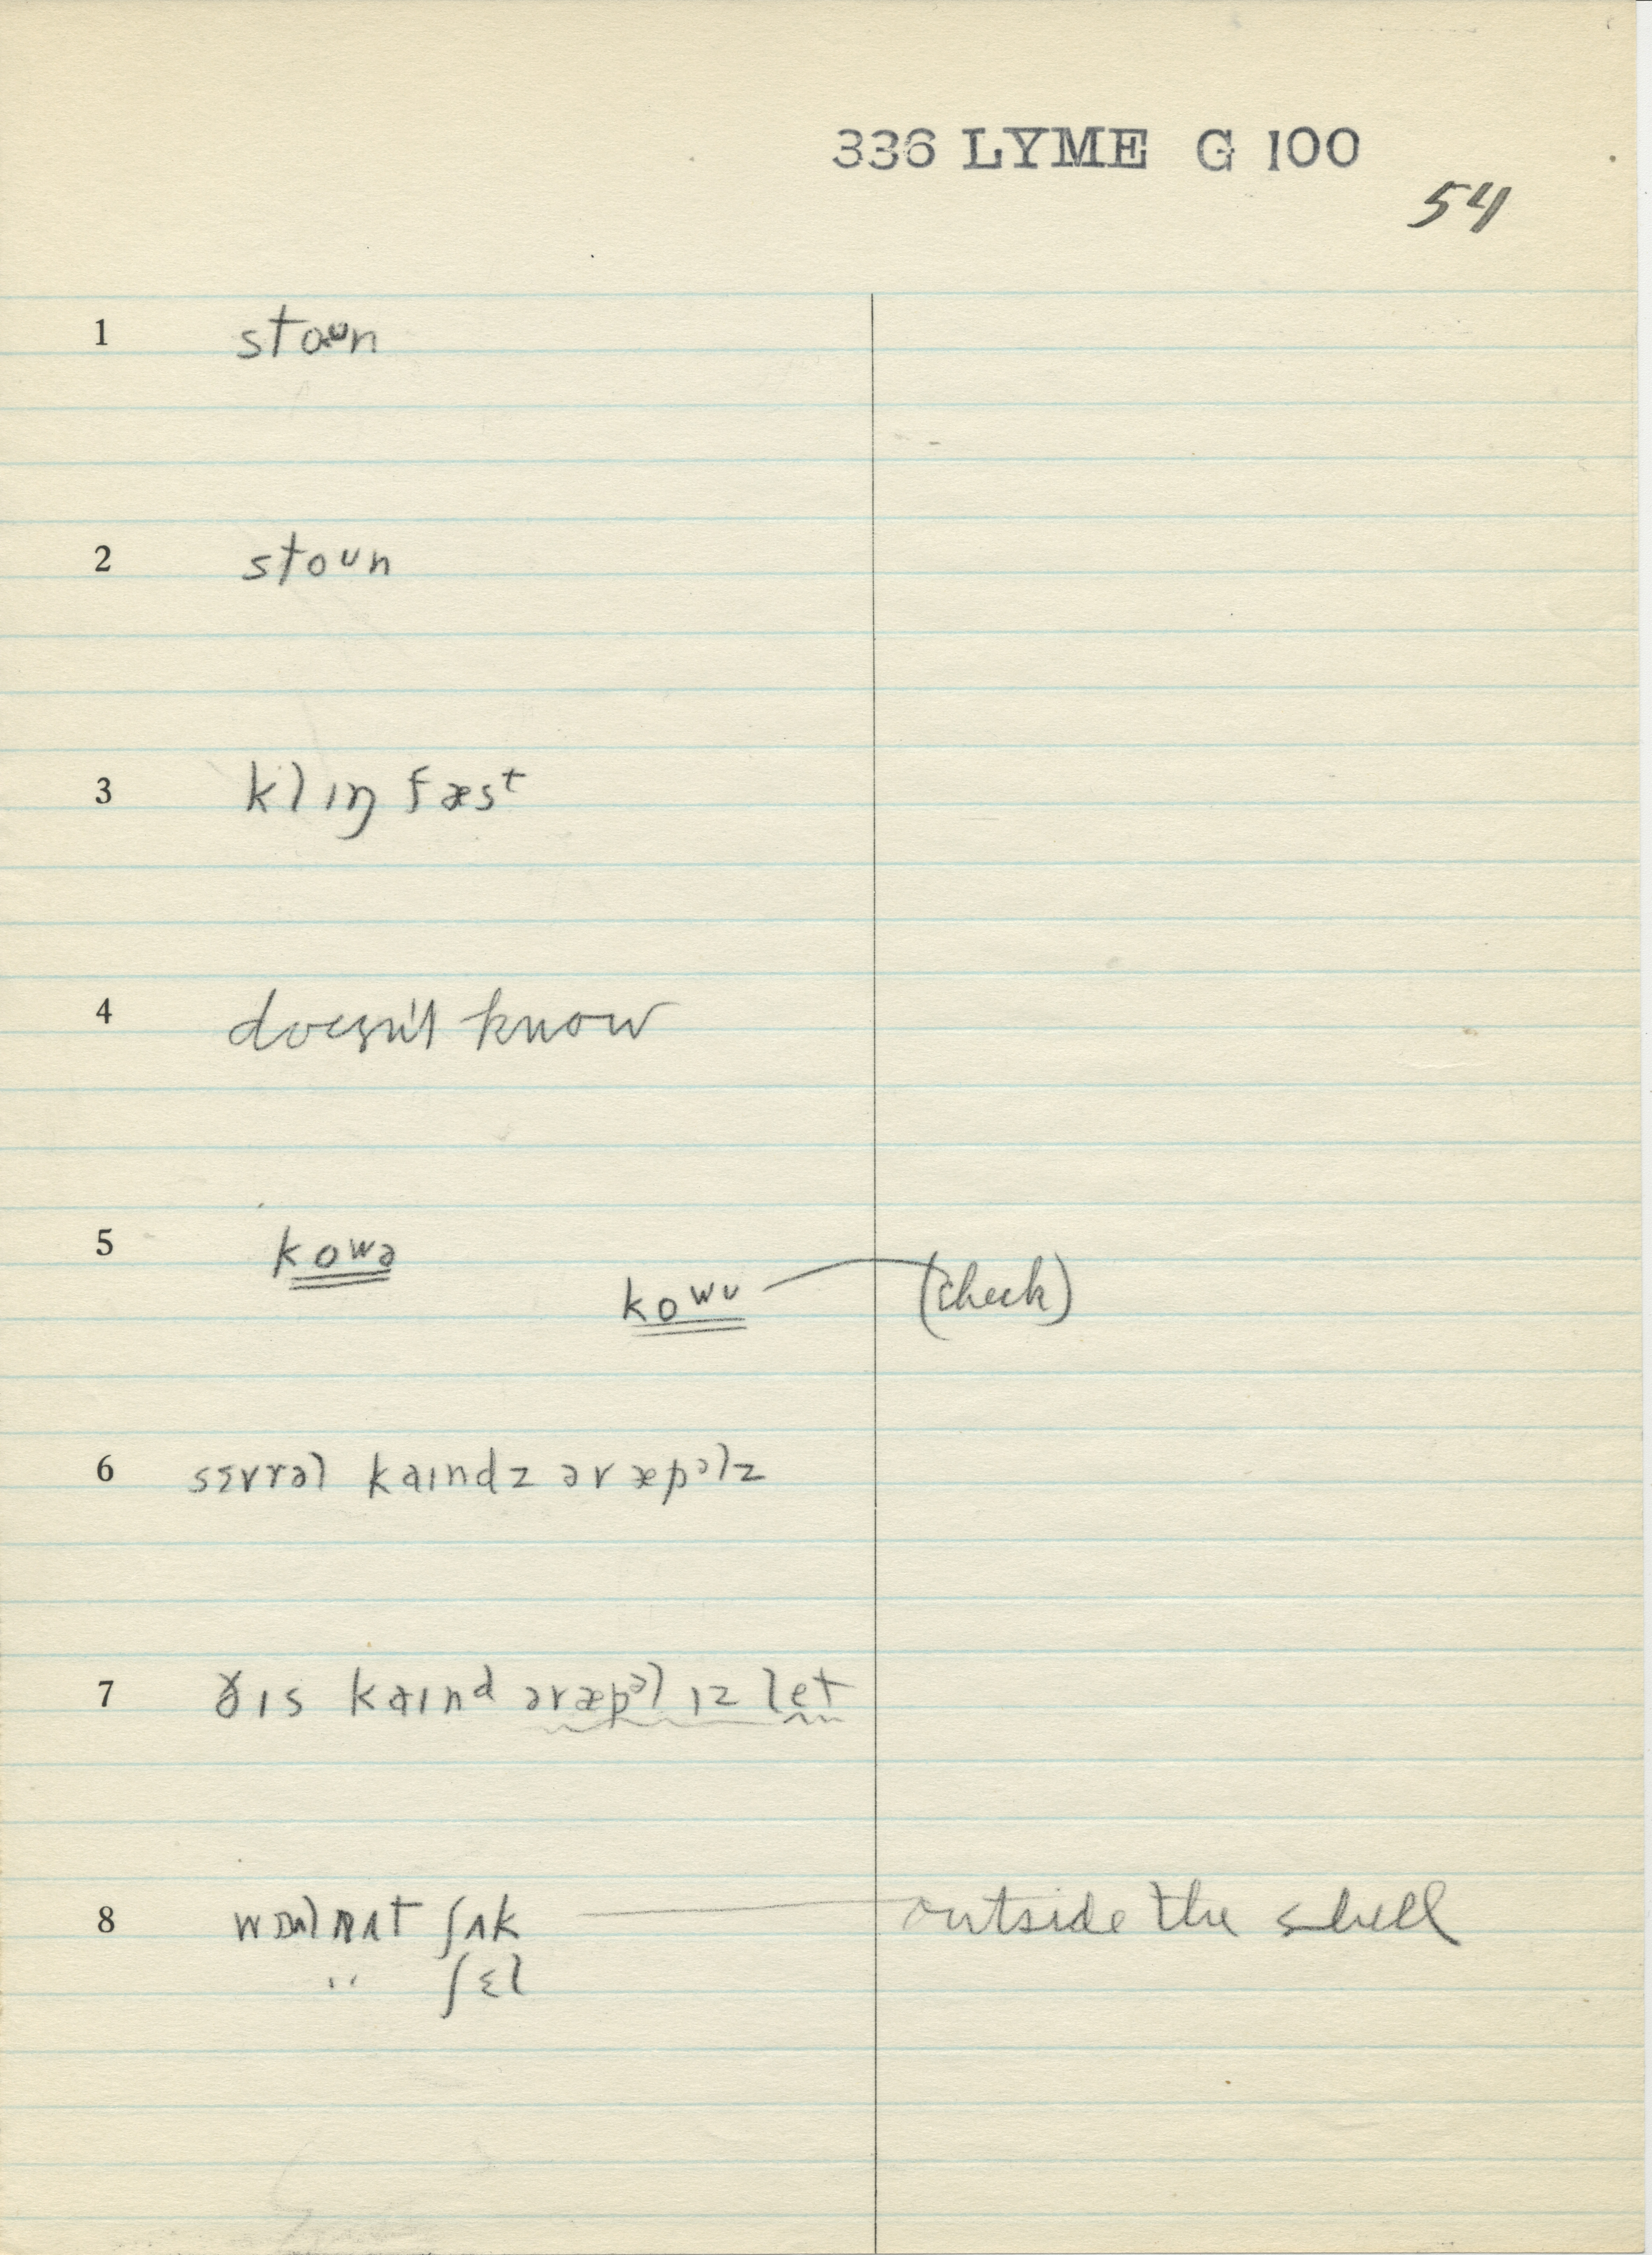 336 LYME G 100
54
1 stoᴜn
2 stoᴜn
3 klɪŋ fæst
4 doesn't know
5 kowə
kowᴜ (check)
6 sɛvrəl kaɪndz əv æpəlz
7 ðɪs kaɪnd əv æpəl ɪz let
8 wɒlnʌt ʃʌk outside the shell
" ʃɛl